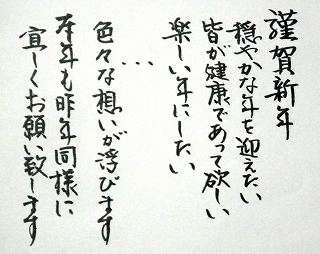 謹賀新年
穏やかな年を迎えたい
皆が健康であって欲しい
楽しい年にしたい
…
色々な想いが浮びます
本年も昨年同様に
宜しくお願い致します